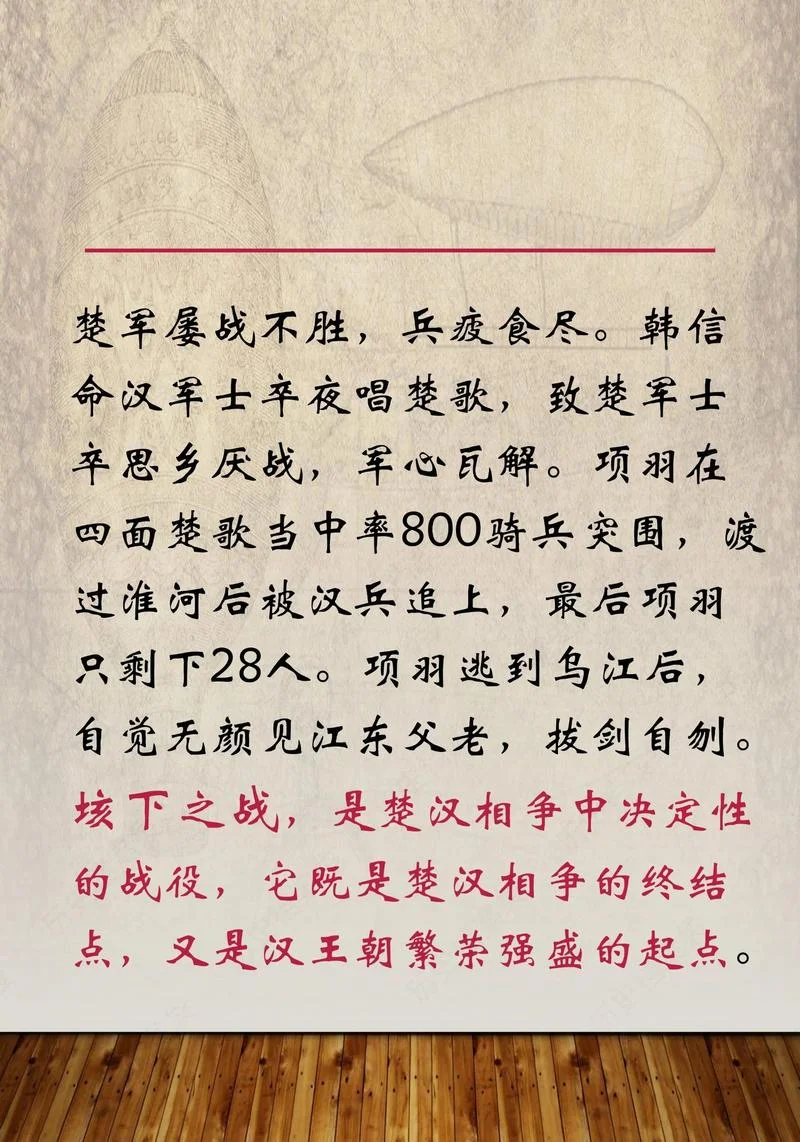 楚军屡战不胜，兵疲食尽。韩信
命汉军士卒夜唱楚歌，致楚军士
卒思乡厌战，军心瓦解。项羽在
四面楚歌当中率800骑兵突围，渡
过淮河后被汉兵追上，最后项羽
只剩下28人。项羽逃到乌江后，
自觉无颜见江东父老，拔剑自刎。
垓下之战，是楚汉相争中决定性
的战役，它既是楚汉相争的终结
点，又是汉王朝繁荣强盛的起点。